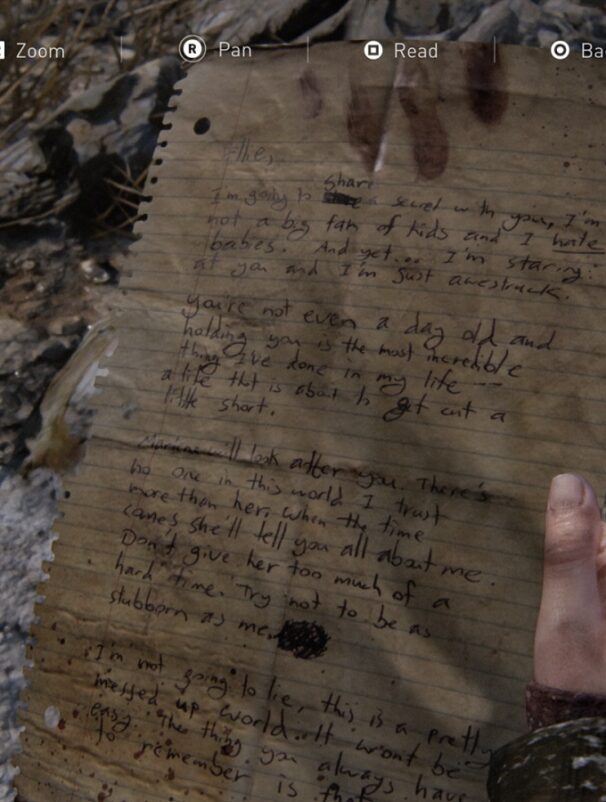 Zoom
R Pan
Read
Ba
Ellie,
share
I'm going to a secret with you, I'm
not a big fan of kids and I hate
babies. And yet... I'm staring
at you and I'm just awestruck.
You're not even a day old and
holding you is the most incredible
thing I've done in my life --
a life that is about to get cut a
little short.
Marlene will look after you. There's
no one in this world I trust
more than her. When the time
comes she'll tell you all about me.
Don't give her too much of a
hard time. Try not to be as
stubborn as me.
I'm not going to lie, this is a pretty
messed up world. It wont be
easy. The thing you always have
to remember is that